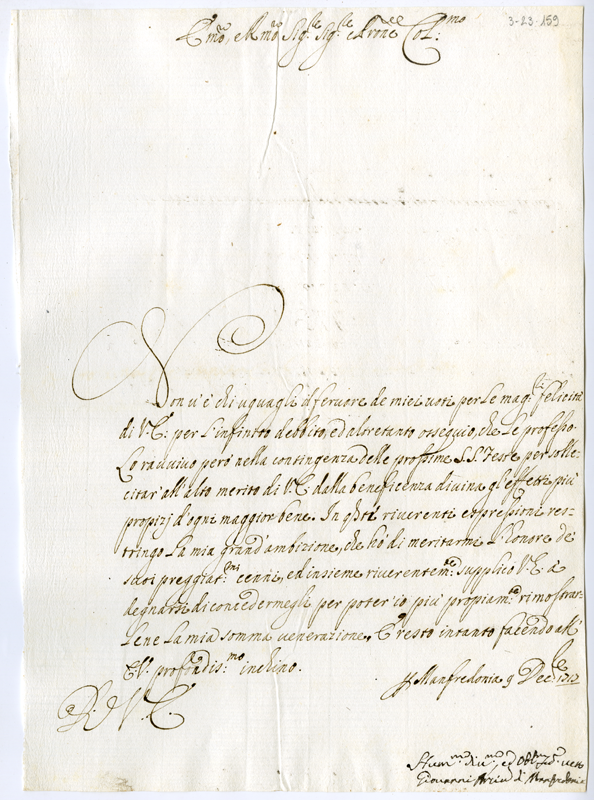 3-23-159
E.mo, e R.mo Sig.re Sig.re e P.rone Col.mo
Non v'è chi uguagli il fervore de miei voti per le mag.ri felicità
di V.E. per l'infinito debbito, ed altretanto ossequio, che le professo.
Lo ravvivo però nella contingenza delle prossime S.S. Feste per solle-
citar'all'alto merito di V.E. dalla beneficenza divina gl'effetti più
propizj d'ogni maggior bene. In q.ste riverenti espressioni res-
tringo la mia grand'ambizione, che hò di meritarmi l'honore de
suoi preggiat.mi cenni, ed insieme riverentem.te supplico V.E. à
degnarsi di concedermegli per poter'io più propiam.te rimostrar-
lene la mia somma venerazione, E resto intanto facendo all'
E.V. profondis.mo inchino.
Manfredonia 9 Dec.bre 1712
D. V. E.
Hum.mo Div.mo ed Obl.mo
Giovanni di Manfredonia